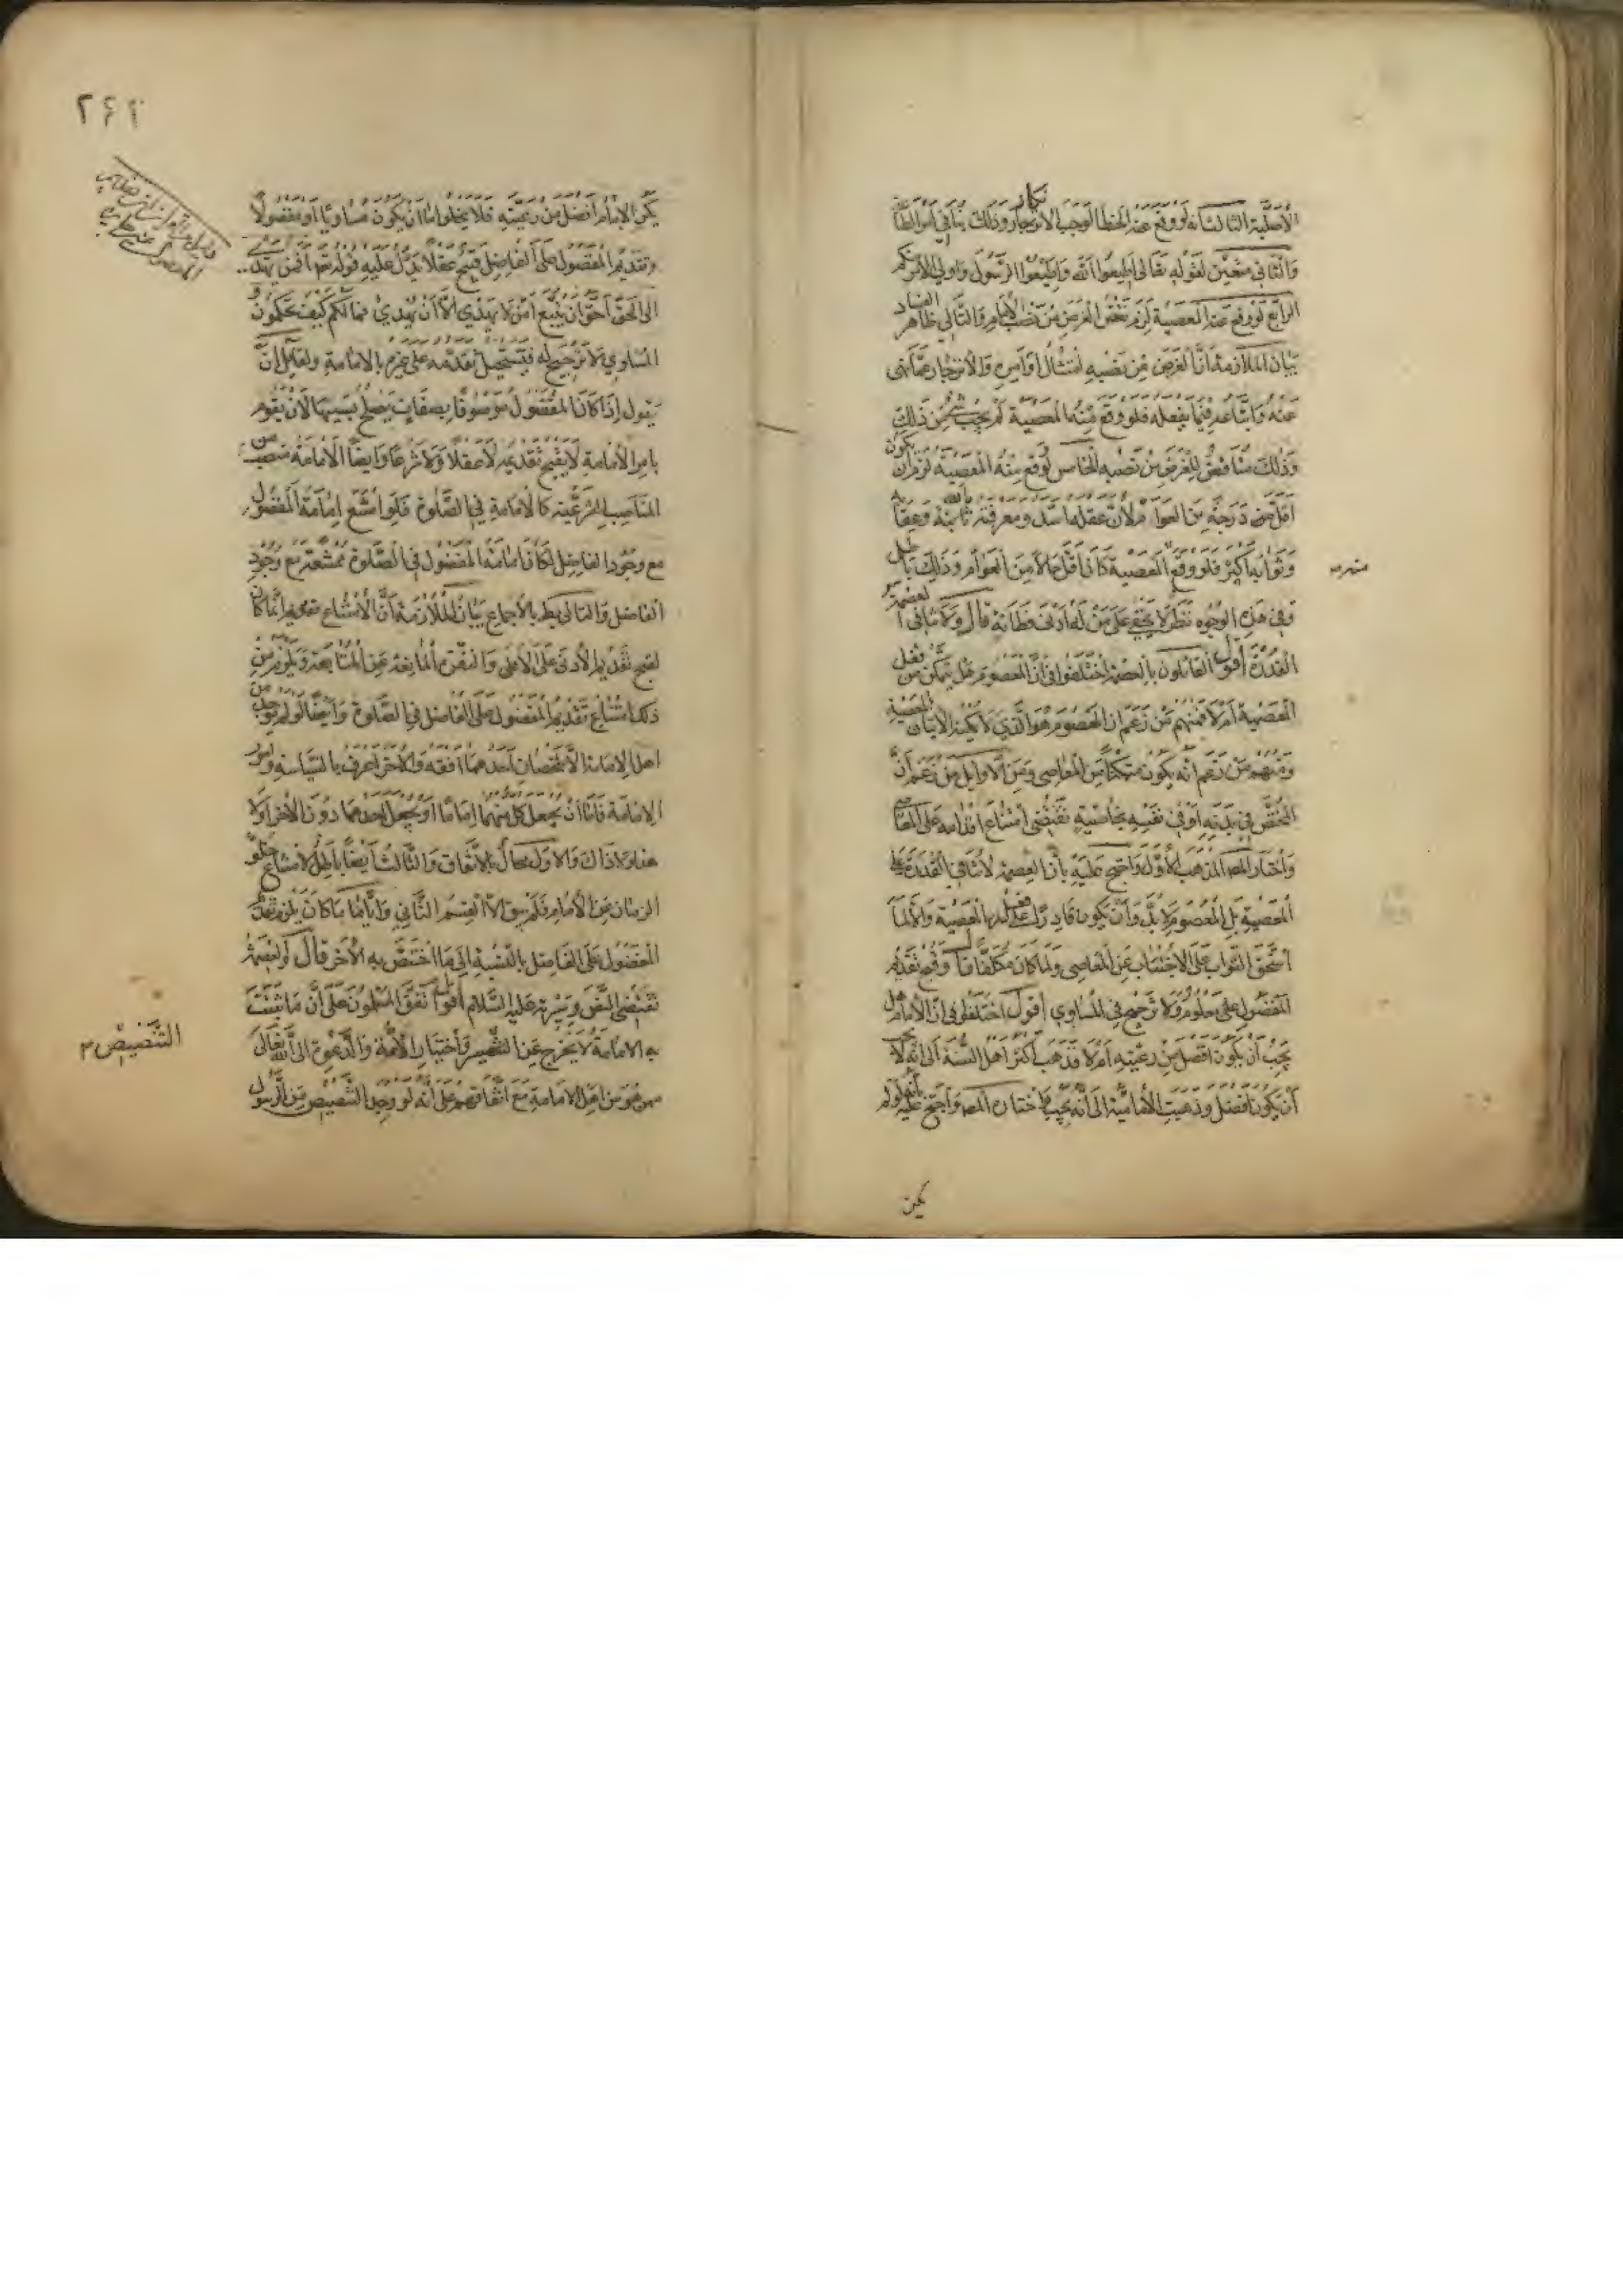 الأصلية الثالث أنه لو وقع عنه الخطأ لوجب الانزجار وذلك ينافي أمر الطاعة
إنكار
والثاني متعين لقوله تعالى أطيعوا الله وأطيعوا الرسول وأولي الأمر منكم
الرابع لو وقع عنه المعصية لزم نقض الغرض من نصب الإمام والتالي ظاهر الفساد
بيان الملازمة أن الغرض من نصبه امتثال أوامره والانزجار عما نهى
عنه واتباعه فيما يفعله فلو وقع منه المعصية لم يجب شيء من ذلك
وذلك مناقض للغرض من نصبه الخامس لو وقع منه المعصية لزم أن يكون
أقل درجة من العوام لأن عقله أشد ومعرفته بالله ثابتة وعقابه
وثوابه أكثر فلو وقع المعصية كان أقل حالا من العوام وذلك باطل
وفي هذه الوجوه نظر لا يخفى على من له أدنى فطانة قال ولا تنافي العصمة
القدرة أقول القائلون بالعصمة اختلفوا في أن المعصوم هل يتمكن من فعل
المعصية أم لا فمنهم من زعم أن المعصوم هو الذي لا يمكنه الإتيان بالمعصية
ومنهم من زعم أنه يكون متمكنا من المعاصي ومن الأوائل من زعم أن
المختص في بدنه أو في نفسه بخاصية تقتضي امتناع إقدامه على المعاصي
واختار المصـ المذهب الأول واحتج عليه بأن العصمة لا تنافي القدرة على
المعصية بل المعصوم لا بد وأن يكون قادرا على فعل المعصية وإلا لما
استحق الثواب على الاجتناب عن المعاصي ولما كان مكلفا قال وقبح تقديم
المفضول على معلوم ولا ترجيح في المساوي أقول اختلفوا في أن الإمام هل
يجب أن يكون أفضل من رعيته أم لا فذهب أكثر أهل السنة إلى أنه لا يجب
أن يكون أفضل وذهبت الإمامية إلى أنه يجب واختاره المصـ واحتج عليه بأنه لو لم
يكن
٢٤٢
يكن الإمام أفضل من رعيته فلا يخلو إما أن يكون مساويا أو مفضولا
وتقديم المفضول على الفاضل قبيح عقلا يدل عليه قوله تعـ أفمن يهدي
إلى الحق أحق أن يتبع أمن لا يهدي إلا أن يهدى فما لكم كيف تحكمون و
المساوي لا ترجيح له فيستحيل تقدمه على غيره بالإمامة ولقائل أن
يقول إذا كان المفضول موصوفا بصفات يصلح بسببها لأن يقوم
بأمر الإمامة لا يقبح تقديمه لا عقلا ولا شرعا وأيضا الإمامة منصب من
المناصب الشرعية كالإمامة في الصلوة فلو امتنع إمامة المفضول
مع وجود الفاضل لكان إمامة المفضول في الصلوة ممتنعة مع وجود
الفاضل والتالي بط بالإجماع بيان الملازمة أن الامتناع تقديره إنما كان
لقبح تقديم الأدنى على الأعلى والنفرة المانعة عن المتابعة ويلزم من
ذلك امتناع تقديم المفضول على الفاضل في الصلوة وأيضا لو لم يوجد من
أهل الإمامة إلا شخصان أحدهما أفقه والآخر أعرف بالسياسة وأمور
الإمامة فإما أن يجعل كل منهما إماما أو يجعل أحدهما دون الآخر أو لا
هذا ولا ذاك والأول محال بالاتفاق والثالث أيضا باطل لامتناع خلو
الزمان عن الإمام فلم يبق إلا القسم الثاني وأياما كان يلزم تقديم
المفضول على الفاضل بالنسبة إلى ما اختص به الآخر قال والعصمة
تقتضي النص وسيرته عليه السلام أقول اتفق المسلمون على أن ما يثبت
به الإمامة لا يخرج عن التنصيص واختيار الأمة والدعوة إلى الله تعالى
ممن هو من أهل الإمامة مع اتفاقهم على أنه لو وجد التنصيص من الرسول
التنصيص